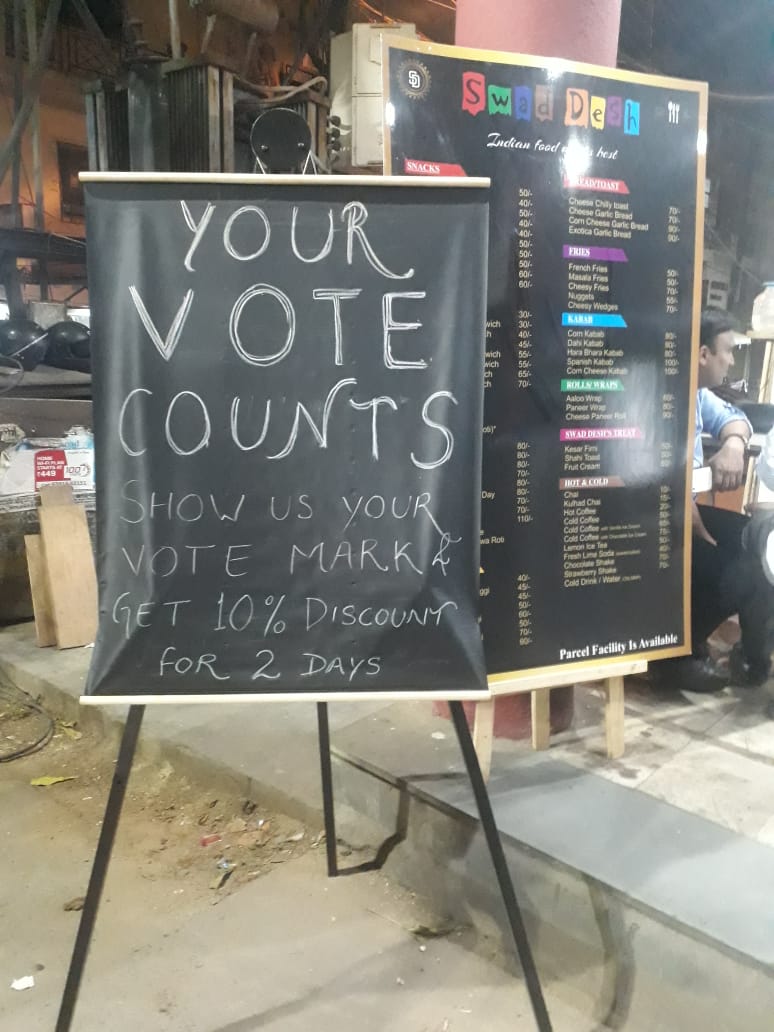 YOUR
VOTE
COUNTS
SHOW US YOUR
VOTE MARK &
GET 10% DISCOUNT
FOR 2 DAYS
SD
Swad Desh
Indian food best
SNACKS
50/-
40/-
50/-
40/-
50/-
50/-
50/-
60/-
60/-
30/-
wich 30/-
h 40/-
45/-
wich 55/-
wich 55/-
ch 65/-
70/-
80/-
80/-
70/-
80/-
Day 80/-
70/-
70/-
110/-
wa Roti
40/-
ggi 45/-
45/-
50/-
60/-
50/-
70/-
60/-
BREAD/TOAST
Cheese Chilly toast 70/-
Cheese Garlic Bread 70/-
Corn Cheese Garlic Bread 90/-
Exotica Garlic Bread 90/-
FRIES
French Fries 50/-
Masala Fries 50/-
Cheesy Fries 70/-
Nuggets 55/-
Cheesy Wedges 70/-
KABAB
Corn Kabab 80/-
Dahi Kabab 80/-
Hara Bhara Kabab 80/-
Spanish Kabab 100/-
Corn Cheese Kabab 100/-
ROLLS/ WRAPS
Aaloo Wrap 60/-
Paneer Wrap 80/-
Cheese Paneer Roll 90/-
SWAD DESH'S TREAT
Kesar Firni 50/-
Shahi Toast 50/-
Fruit Cream 60/-
HOT & COLD
Chai
Kulhad Chai
Hot Coffee
Cold Coffee
Cold Coffee with Vanilla Ice Cream
Cold Coffee with Chocolate Ice Cream
Lemon Ice Tea
Fresh Lime Soda
Chocolate Shake 70/-
Strawberry Shake 70/-
Cold Drink / Water
Parcel Facility Is Available
HOME
WI-FI PLAN
STARTS AT
₹449
100